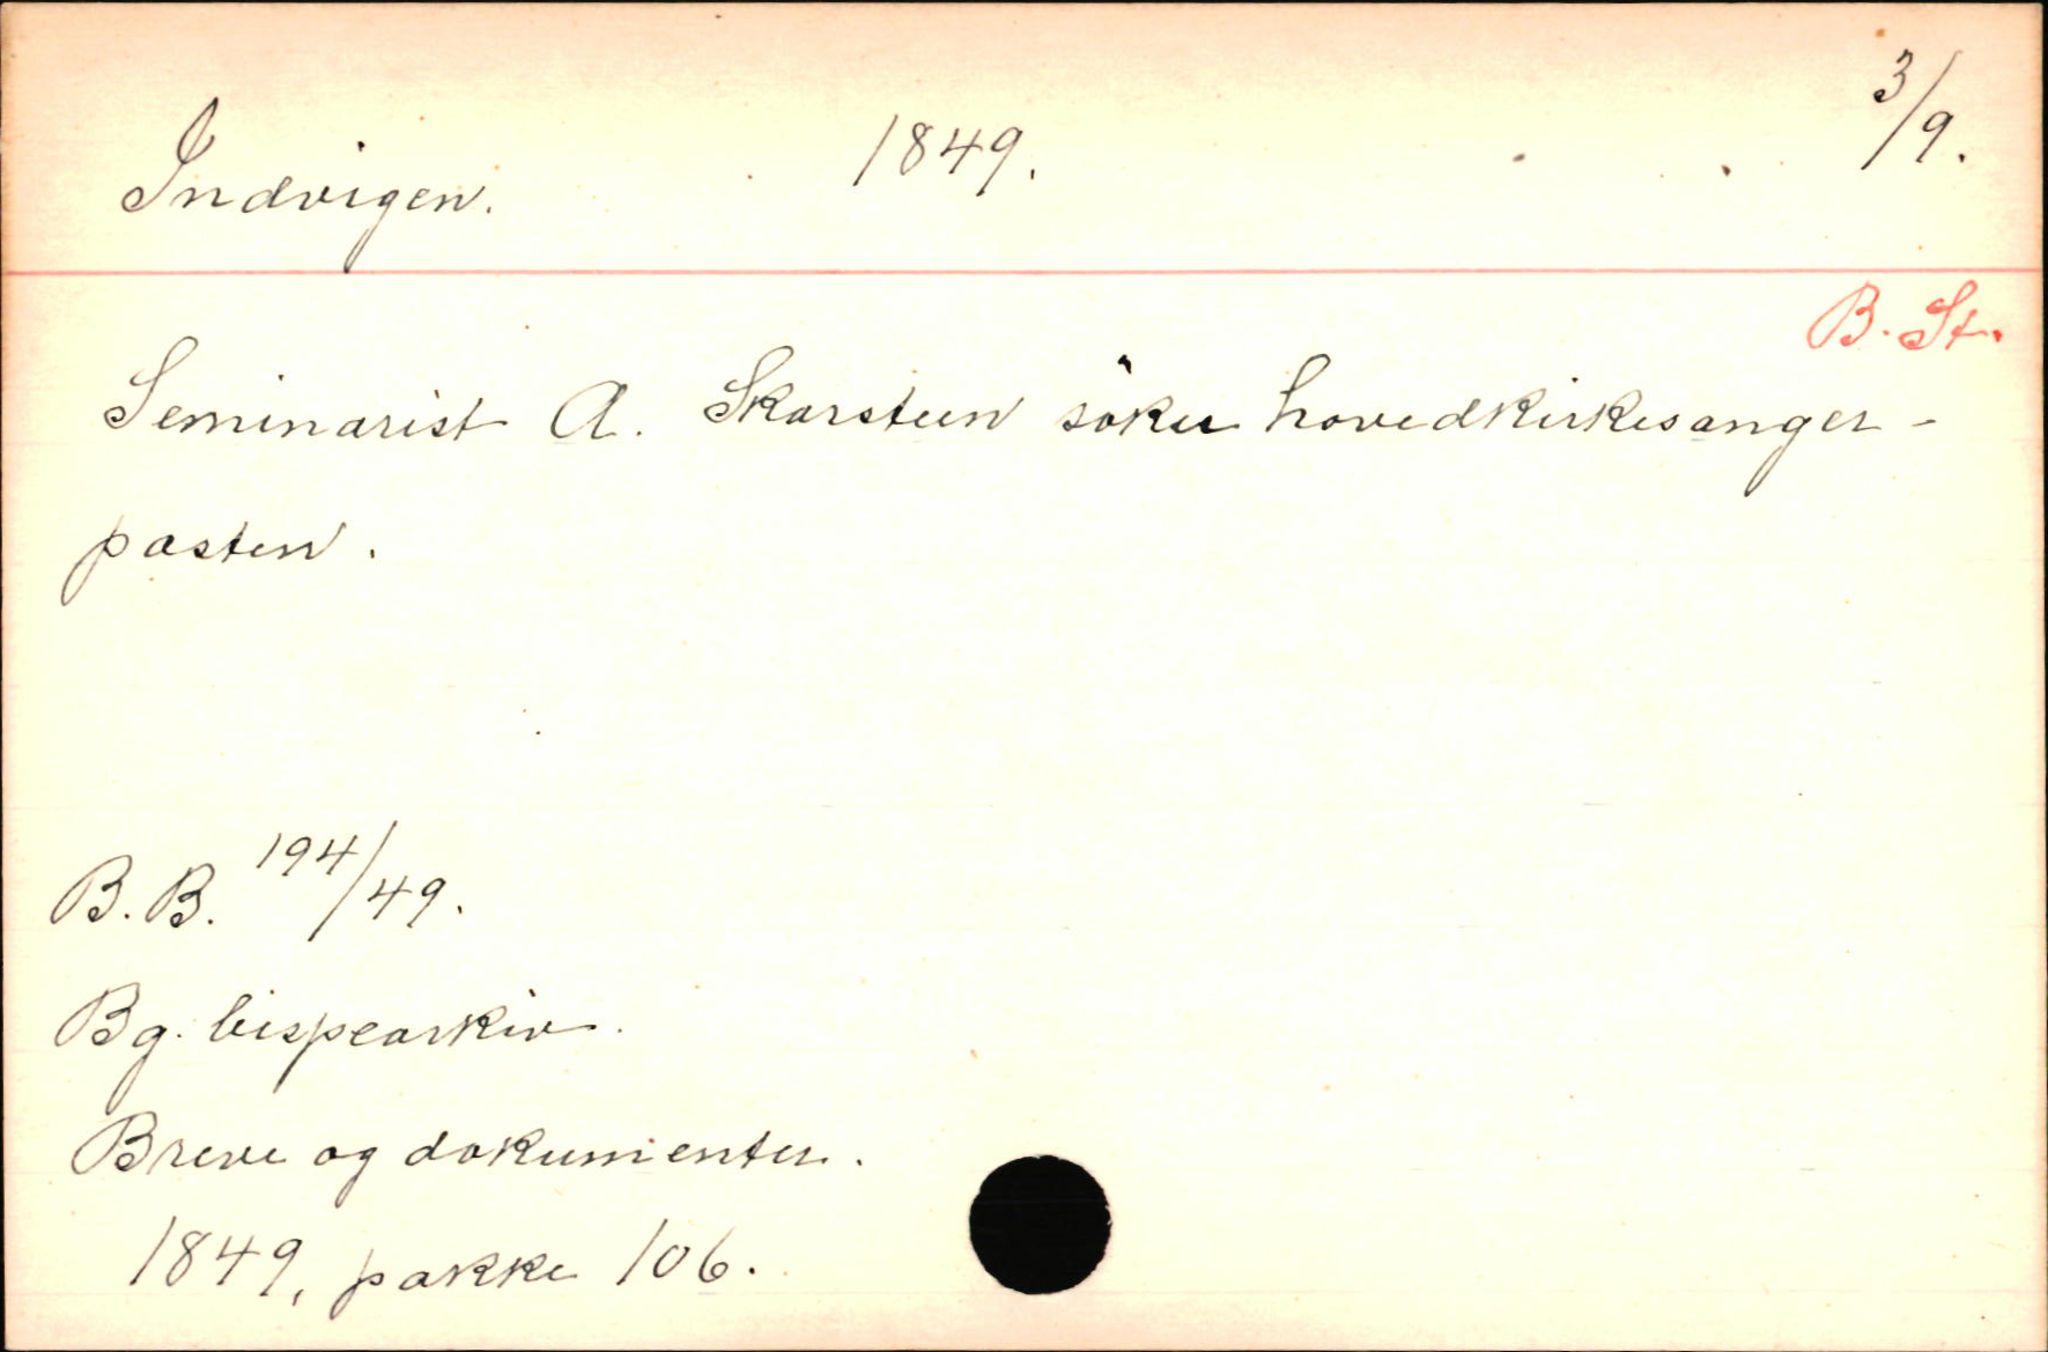 Indvigen. 1849. 3/9.
B. St.
Seminarist A. Skarsteen söker hovedkirkesanger-
posten.
B. B. 194/49.
Bg. bispearkiv.
Breve og dokumenter.
1849, pakke 106.